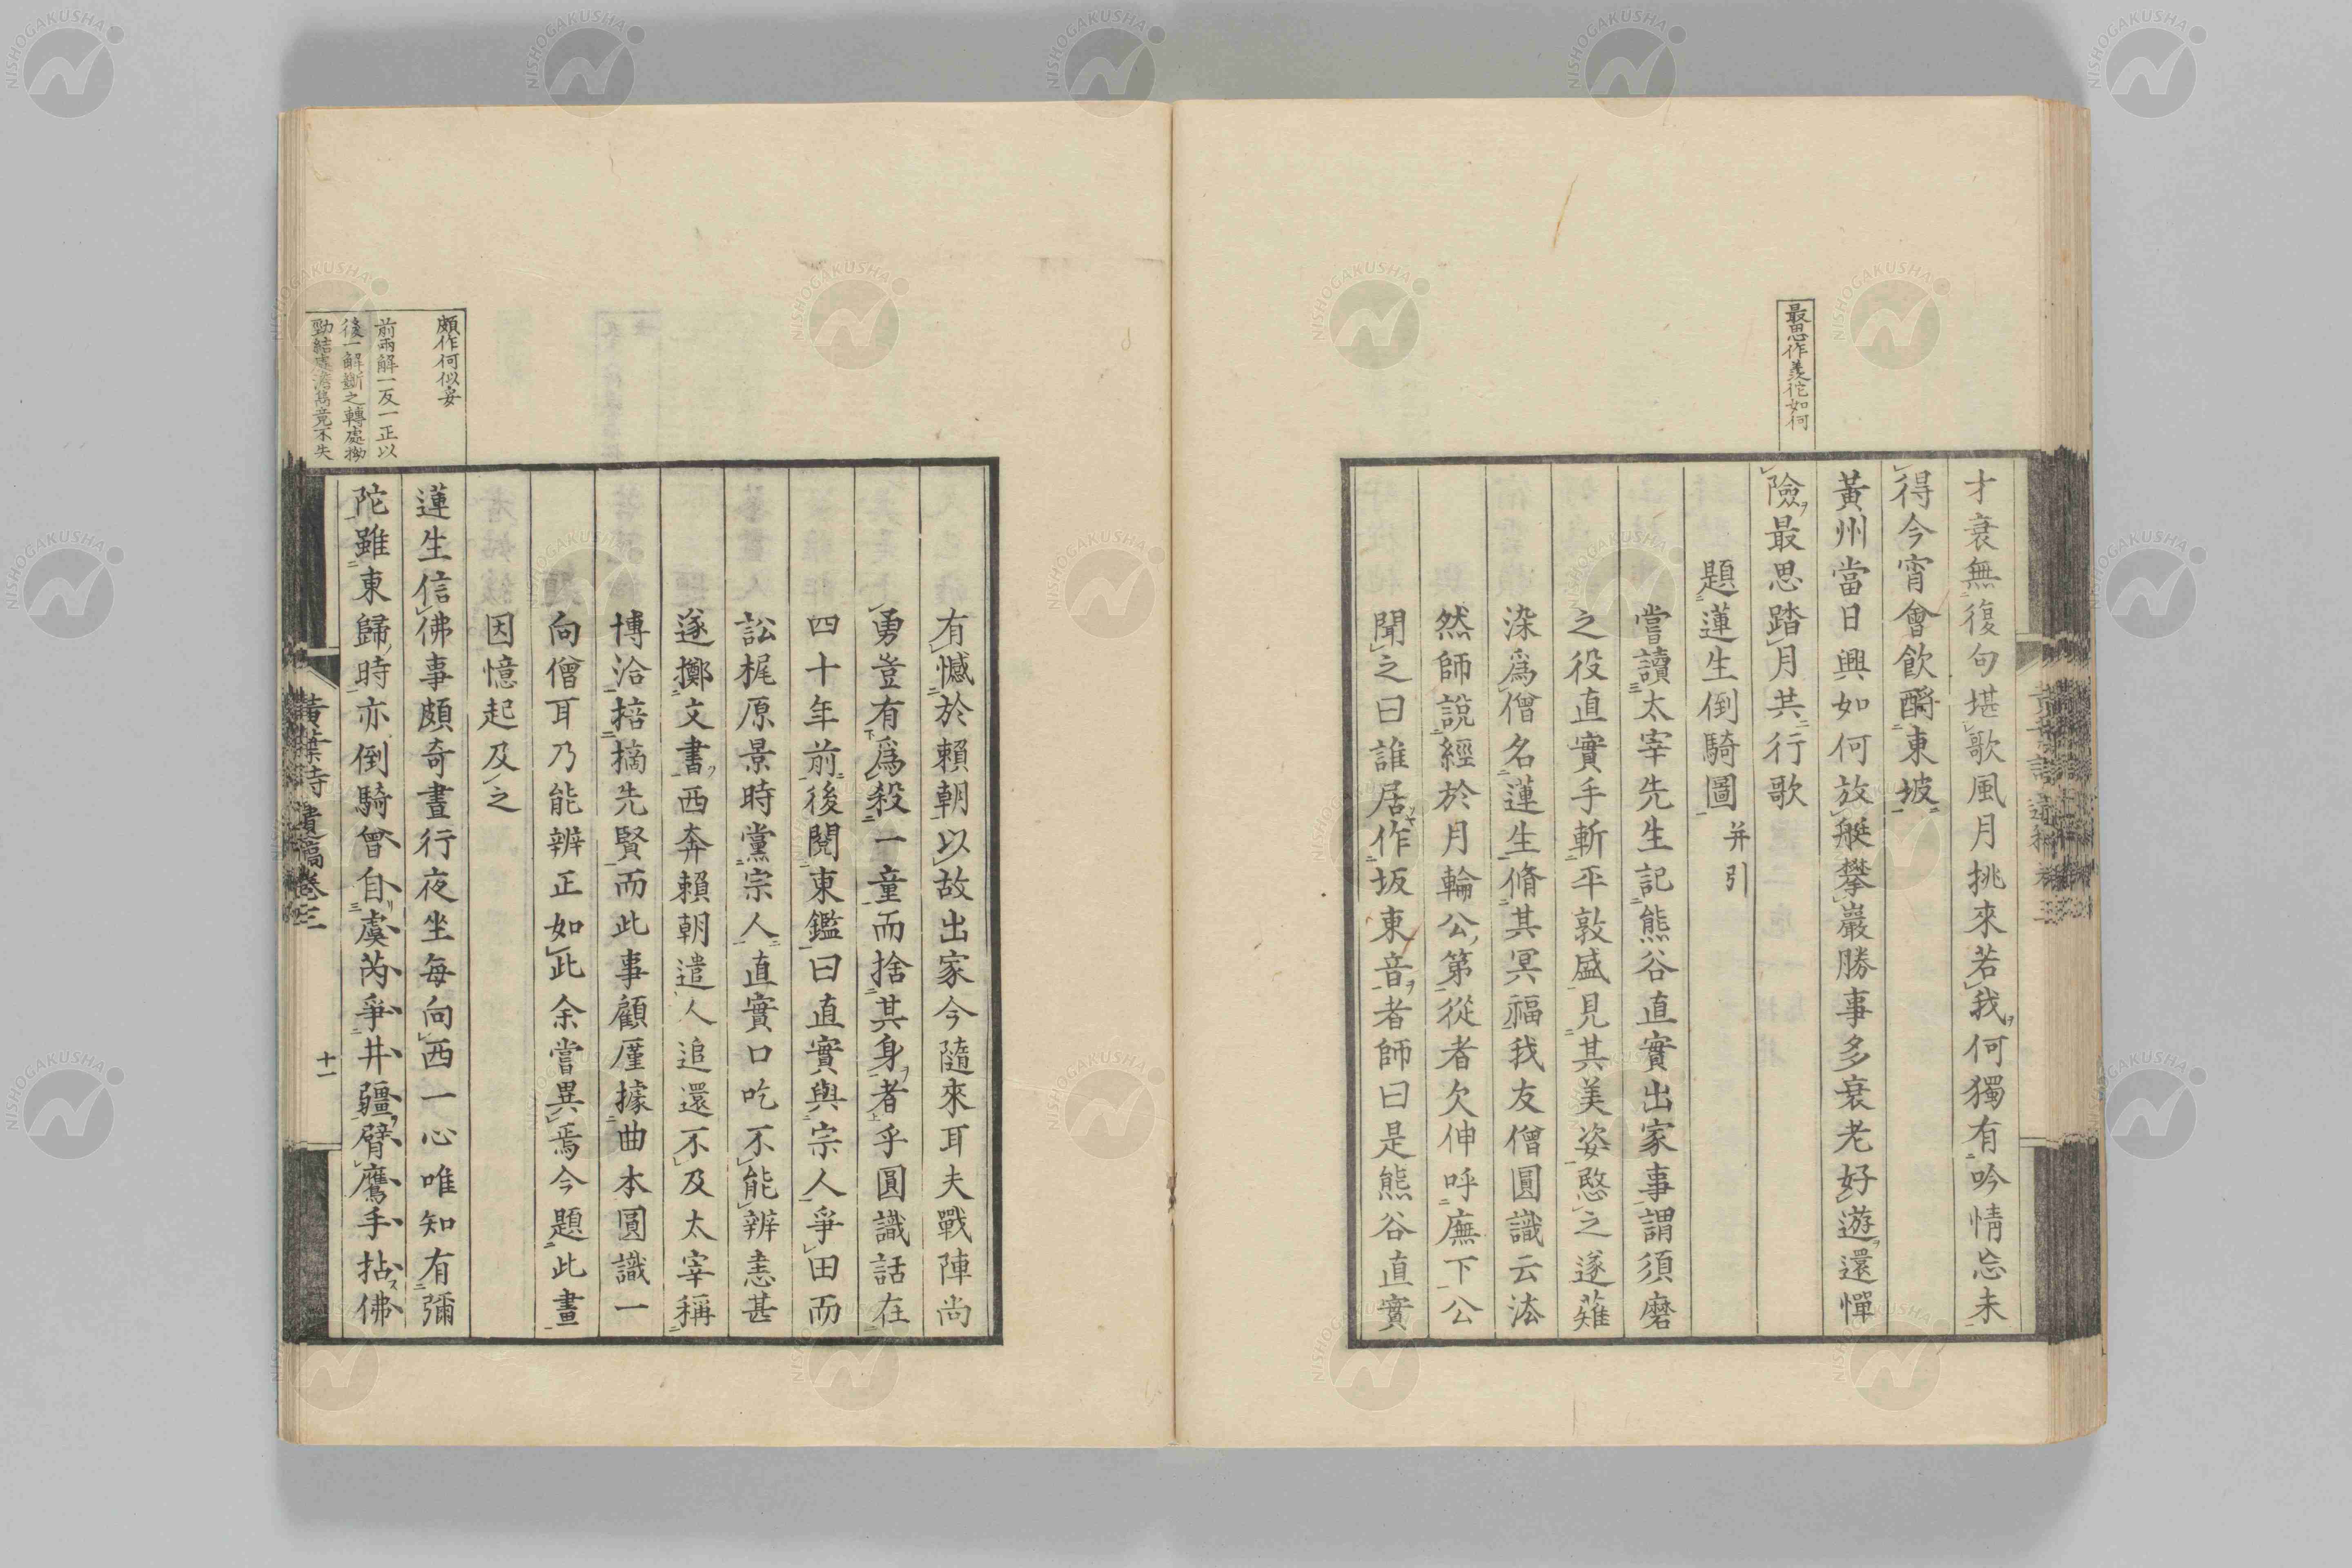 才衰無復句堪歌風月挑來若我何獨有吟情忘未
得今宵會飲酹東坡
黃州當日興如何放艇攀巖勝事多衰老好遊還憚
險最思踏月共行歌
最思作羨佗如何
題蓮生倒騎圖 并引
嘗讀太宰先生記熊谷直實出家事謂須磨
之役直實手斬平敦盛見其美姿愍之遂薙
染爲僧名蓮生脩其冥福我友僧圓識云法
然師說經於月輪公第從者欠伸呼廡下公
聞之曰誰居作坂東音者師曰是熊谷直實
有憾於賴朝以故出家今隨來耳夫戰陣尚
勇豈有爲殺一童而捨其身者乎圓識話在
四十年前後閱東鑑曰直實與宗人爭田而
訟梶原景時黨宗人直實口吃不能辨恚甚
遂擲文書西奔賴朝遣人追還不及太宰稱
博洽掊摘先賢而此事顧厪據曲本圓識一
向僧耳乃能辨正如此余嘗異焉今題此畫
因憶起及之
蓮生信佛事頗奇晝行夜坐每向西一心唯知有彌
陀雖東歸時亦倒騎曾自虞芮爭井疆臂鷹手拈佛
頗作何似妥
前兩解一反一正以
後一解斷之轉處拗
勁結處澹雋竟不失
黃葉夕陽村舍詩 遺稿卷三
十一